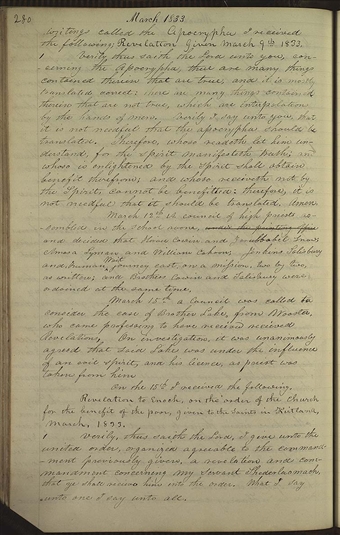 280 March 1833.
writings called the Apocrypha I received
the following Revelation Given March 9th 1833.
1 Verily, thus saith the Lord unto you, con-
cerning the Apocrypha, there are many things
contained therein that are true, and it is mostly
translated correct: there are many things contained
therein that are not true, which are interpolations
by the hands of men. Verily I say unto you, that
it is not needful that the apocrypha should be
translated. Therefore, whoso readeth let him un-
derstand, for the Spirit manifesteth truth; and
whoso is enlightened by the Spirit shall obtain
benefit therefrom; and whoso receiveth not by
the Spirit, cannot be benefitted: therefore, it is
not needful that it should be translated, Amen.
March 12th A council of high priests as-
sembled in the school room,
and decided that Cowin and Zerubbabel Snow,
Amasa Lyman, and William Cahoon, Jenkins Salisbury
and Truman Wait journey east on a mission. two by two,
as written; and Brothers Cowin and Salisbury were
ordained at the same time.
March 15th a Council was called to
consider the case of Brother Lake, from Wooster,
who came professing to have received
Revelations. On investigation, it was unanimously
agreed that said Lake was under the influence
of an evil spirit, and his licence, as priest was
taken from him.
On the 15th I received the following,
Revelation to Enoch, on the order of the Church
for the benefit of the poor, given to the saints in Kirtland,
March, 1833.
1 Verily, thus saith the Lord, I give unto the
united order, organized agreeable to the command-
ment previously given, a revelation and com-
mandment concerning my servant Shederlaomach,
that ye shall receive him into the order. What I say
unto one I say unto all.